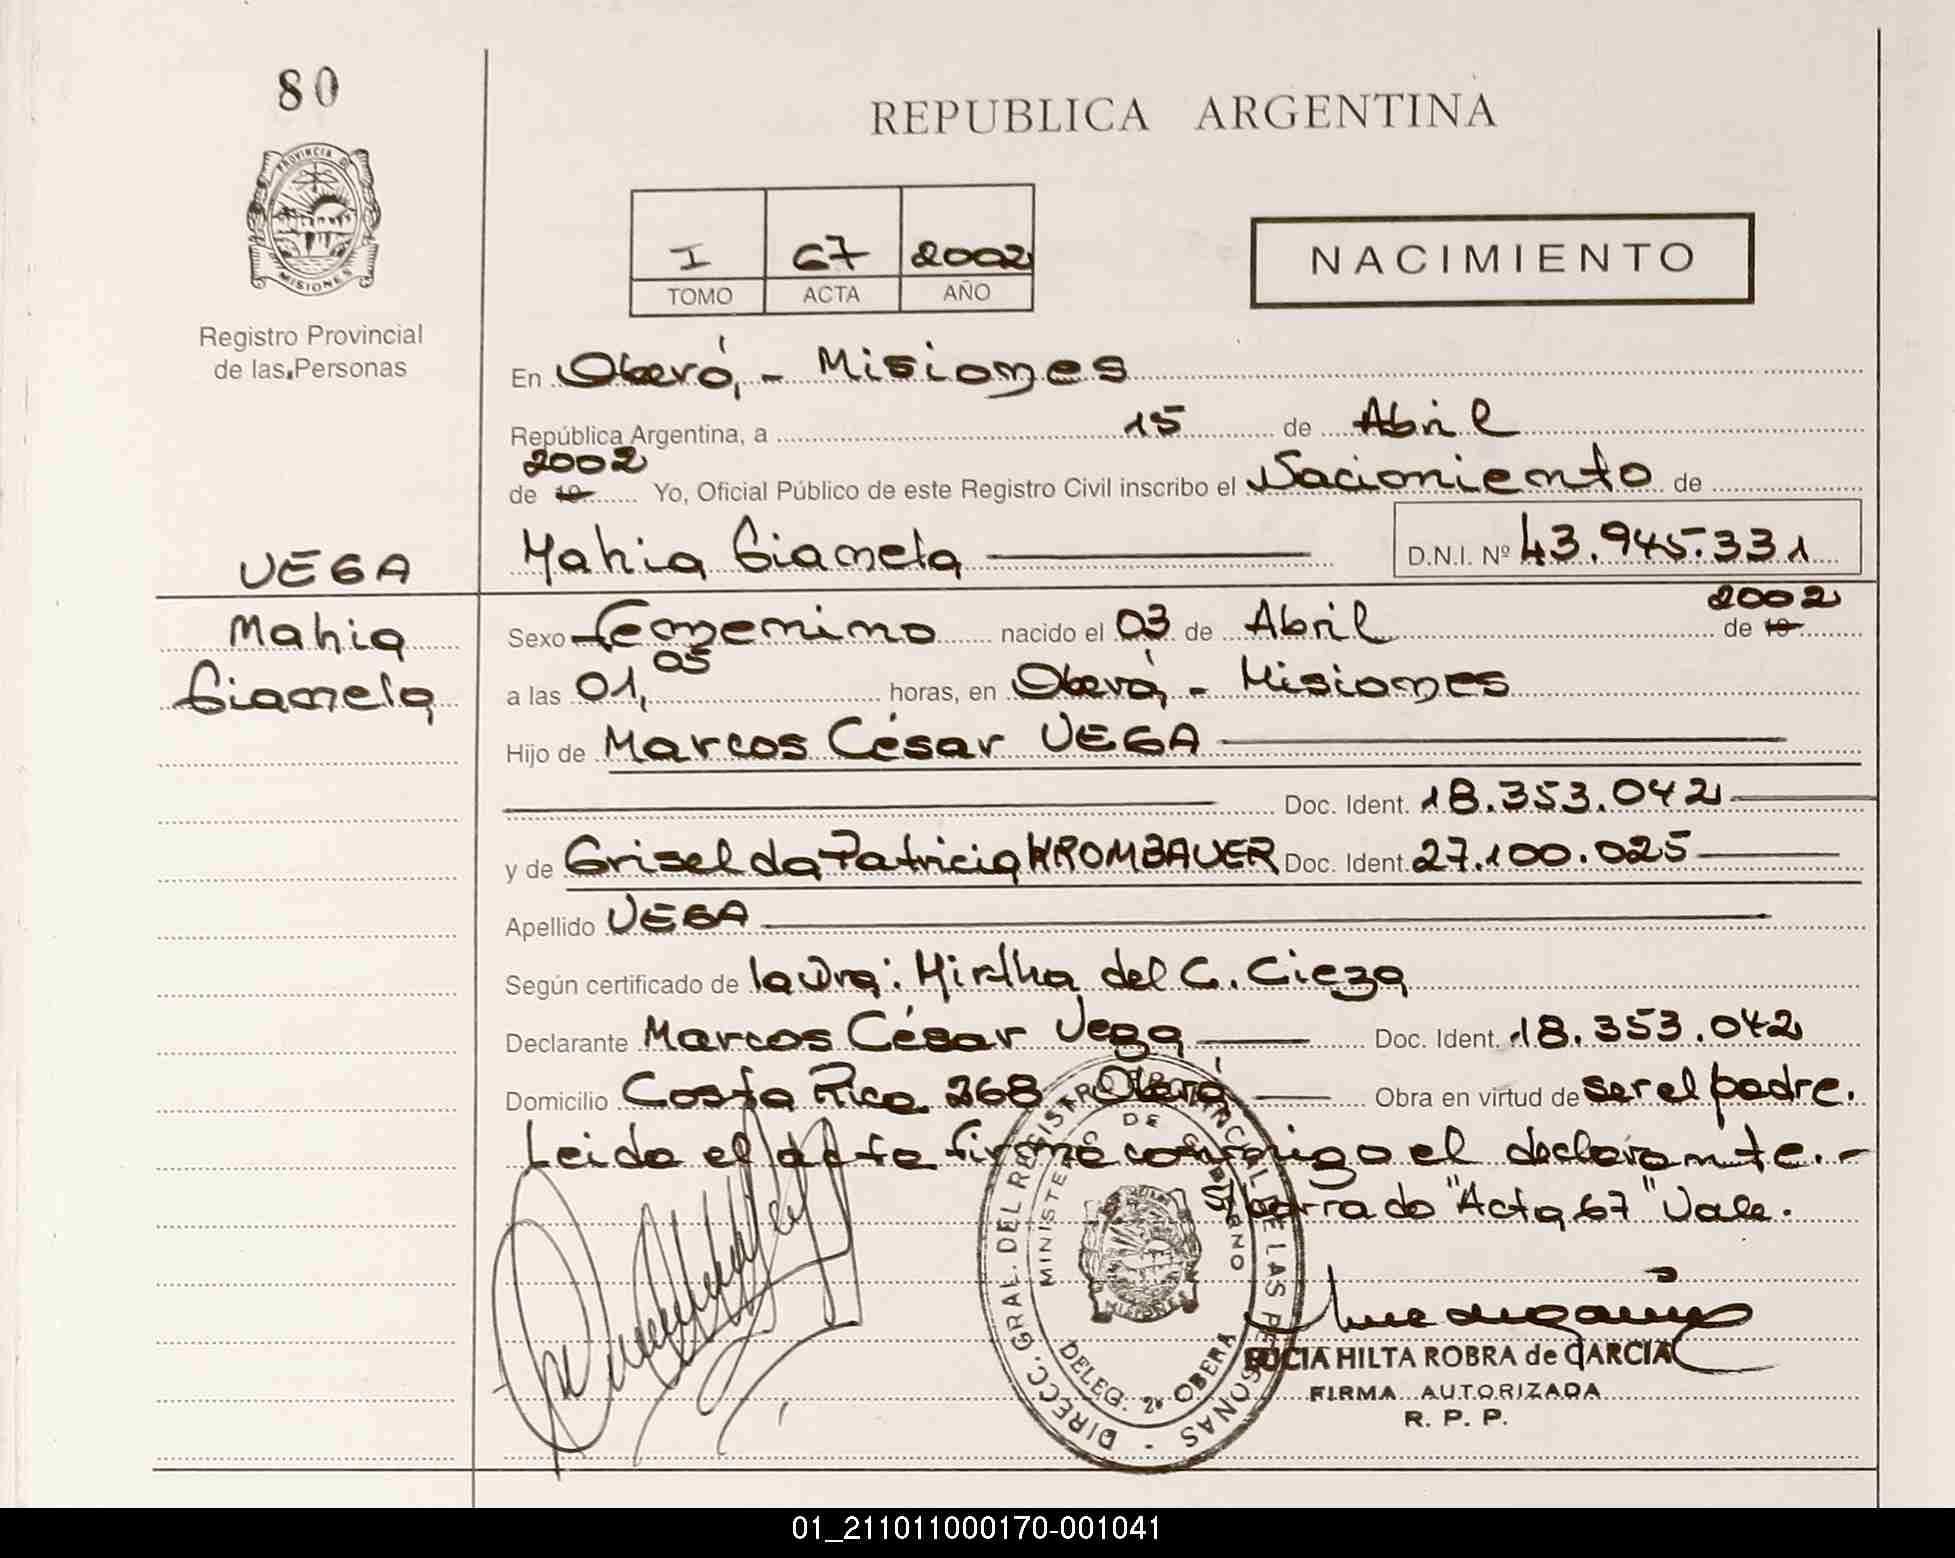 80
REPUBLICA ARGENTINA
PROVINCIA DE
MISIONES
Registro Provincial
de las Personas
I 67 2002
TOMO ACTA AÑO
NACIMIENTO
En Oberá, - Misiones
República Argentina, a 15 de Abril
2002
de 19 Yo, Oficial Público de este Registro Civil inscribo el Nacimiento de
Mahia Gianela D.N.I. Nº 43.945.331
VEGA
Mahia
Gianela
2002
Sexo femenino nacido el 03 de Abril de 19
a las 01,05 horas, en Oberá, - Misiones
Hijo de Marcos César VEGA
Doc. Ident. 18.353.042
y de Griselda Patricia KROMBAUER Doc. Ident. 27.100.025
Apellido VEGA
Según certificado de la Dra: Mirtha del C. Cieza
Declarante Marcos César Vega Doc. Ident. 18.353.042
Domicilio Costa Rica 268 Oberá Obra en virtud de ser el padre.
Leida el acta firma conmigo el declarante.-
S/borrado "Acta 67" Vale.
DIRECC. GRAL. DEL REGISTRO PROVINCIAL DE LAS PERSONAS -
MINISTERIO DE GOBIERNO
MISIONES
DELEG. 2ª OBERA
LUCIA HILTA ROBRA de GARCIA
FIRMA AUTORIZADA
R. P. P.
01_211011000170-001041